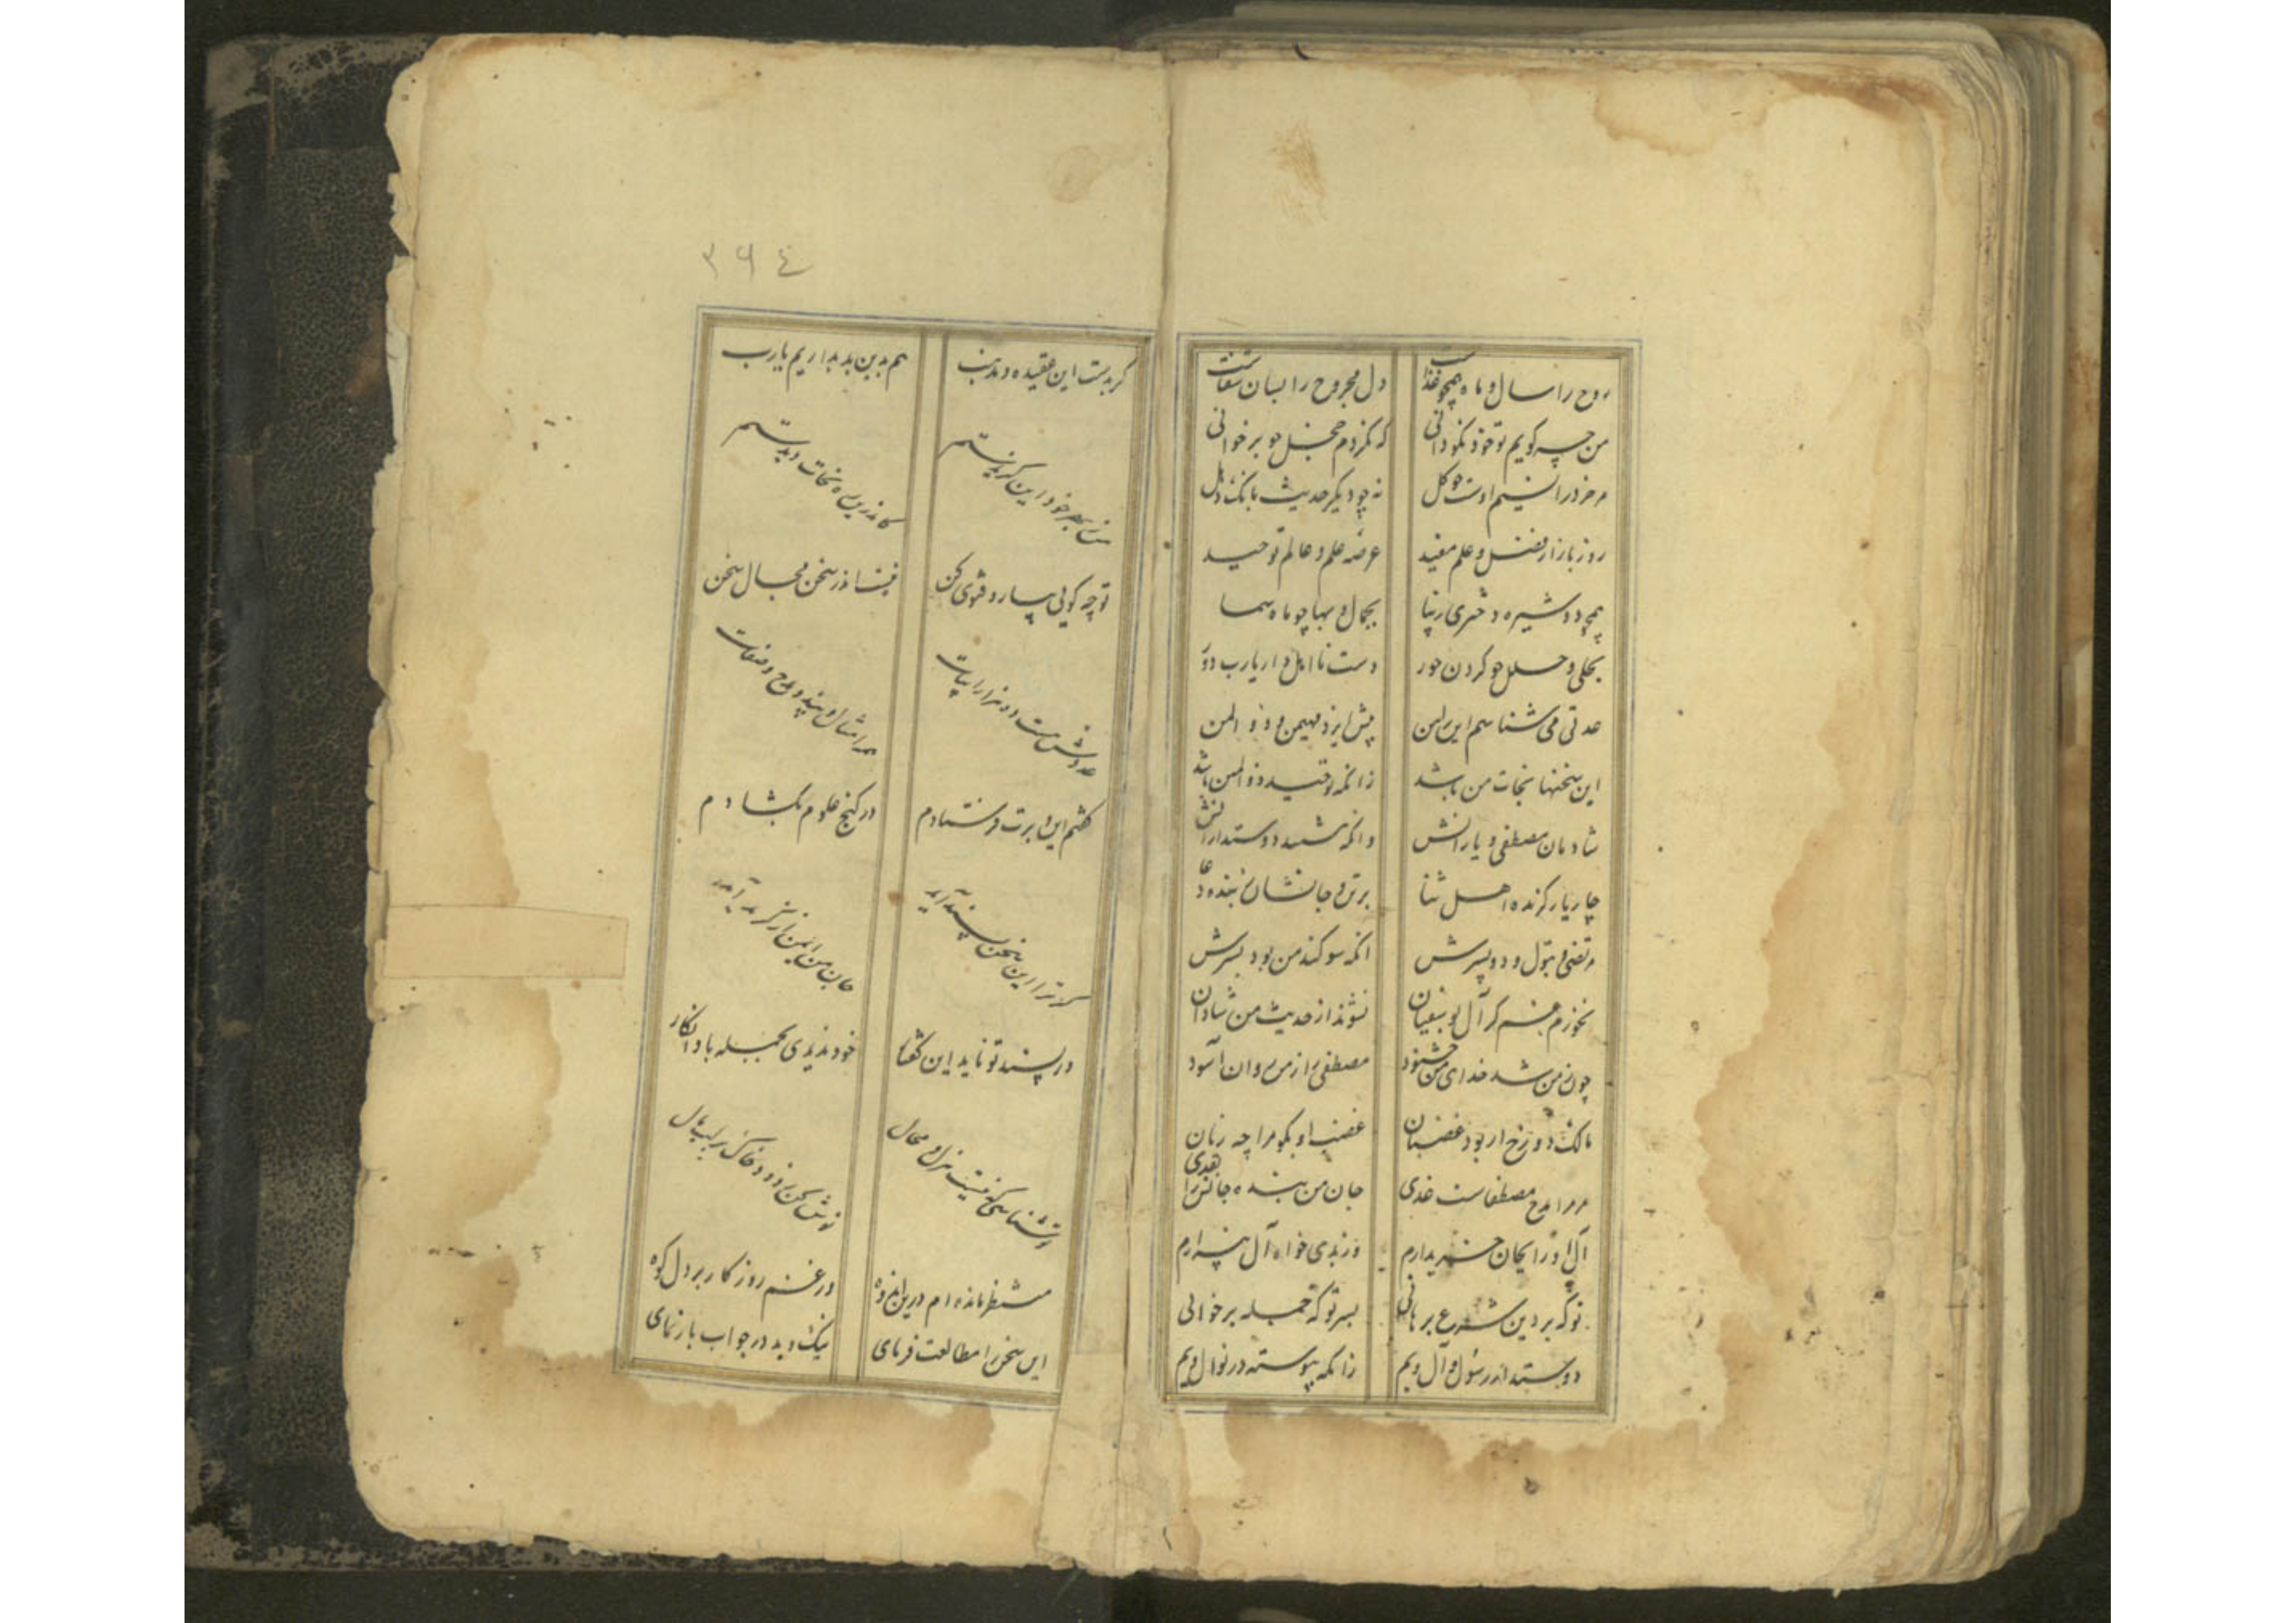 روح را سال و ماه همچو غذاست دل مجروح را بسان شفاست
من چه کویم تو خود نکو دانی که نکردم خجل چو برخوانی
مر خرد را نسیم اوست چو کل نه چو دیکر حدیث بانک دهل
روز بازار فضل و علم مفید عرضه علم و عالم توحید
همچو دوشیزه دختری زیبا بجمال و بها چو ماه سما
بحلی و حلل چو کردن حور دست نا اهل دار یارب دور
عدتی می شناسم این را من پیش ایزد مهیمن و ذو المن
این سخنها نجات من باشد زانکه توحید ذو المنن باشد
شادمان مصطفی و یارانش وانکه شد دوستدارانش
چار یار کزنده اهل ثنا بر تن و جانشان ز بنده دعا
مرتضی و بتول و دو پسرش انکه سوکند من بود بسرش
نخورم غم کر آل بو سفیان نشوند از حدیث من شادان
چون ز من شد خدای من خشنود مصطفی را ز من روان آسود
مالک دوزخ ار بود غضبان غضب او بکو مرا چه زیان
مر مرا مدح مصطفاست غذی جان من بنده جانش را بفدی
آل او را بجان خریدارم وز بدی خواه آل بیزارم
تو که بر دین شرع برهانی بسر تو که جمله برخوانی
دوستدار رسول و آل ویم زانکه پیوسته در نوال ویم
٣٩٤
کر بدست این عقیده و مذهب هم بدین بد بداریم یارب
من ز بهر خود این کزیدستم کاندرین ره نجات دیدستم
تو چه کویی بیار و فتوی کن نیست اندر سخن مجال سخن
عددش هست ده هزار ابیات همه امثال و پند و مدح و صفات
کفتم این و برت فرستادم در کنج علوم بکشادم
کر ترا این سخن پسند آید جان من ایمن از کزند آید
ور پسند تو ناید این کفتار خود ندیدی بجمله باد انکار
ور شناسی که نیست هزل و محال
منتظر مانده ام درین اندوه در غم روزکار بر دل کوه
این سخن را مطالعت فرمای نیک و بد در جواب بازنمای